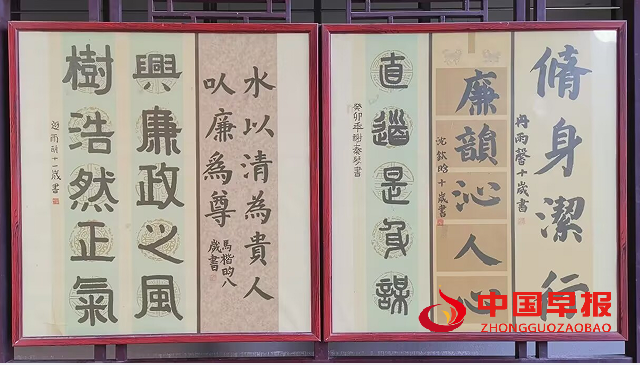 脩身潔行
冉雨馨十歲書
廉韻沁人心
十歲書
直道是身謀
癸卯年
書
水以清為貴人
以廉為尊
馬楷昀八
歲書
興廉政之風
樹浩然正氣
十二歲書
中国早报
ZHONGGUOZAOBAO